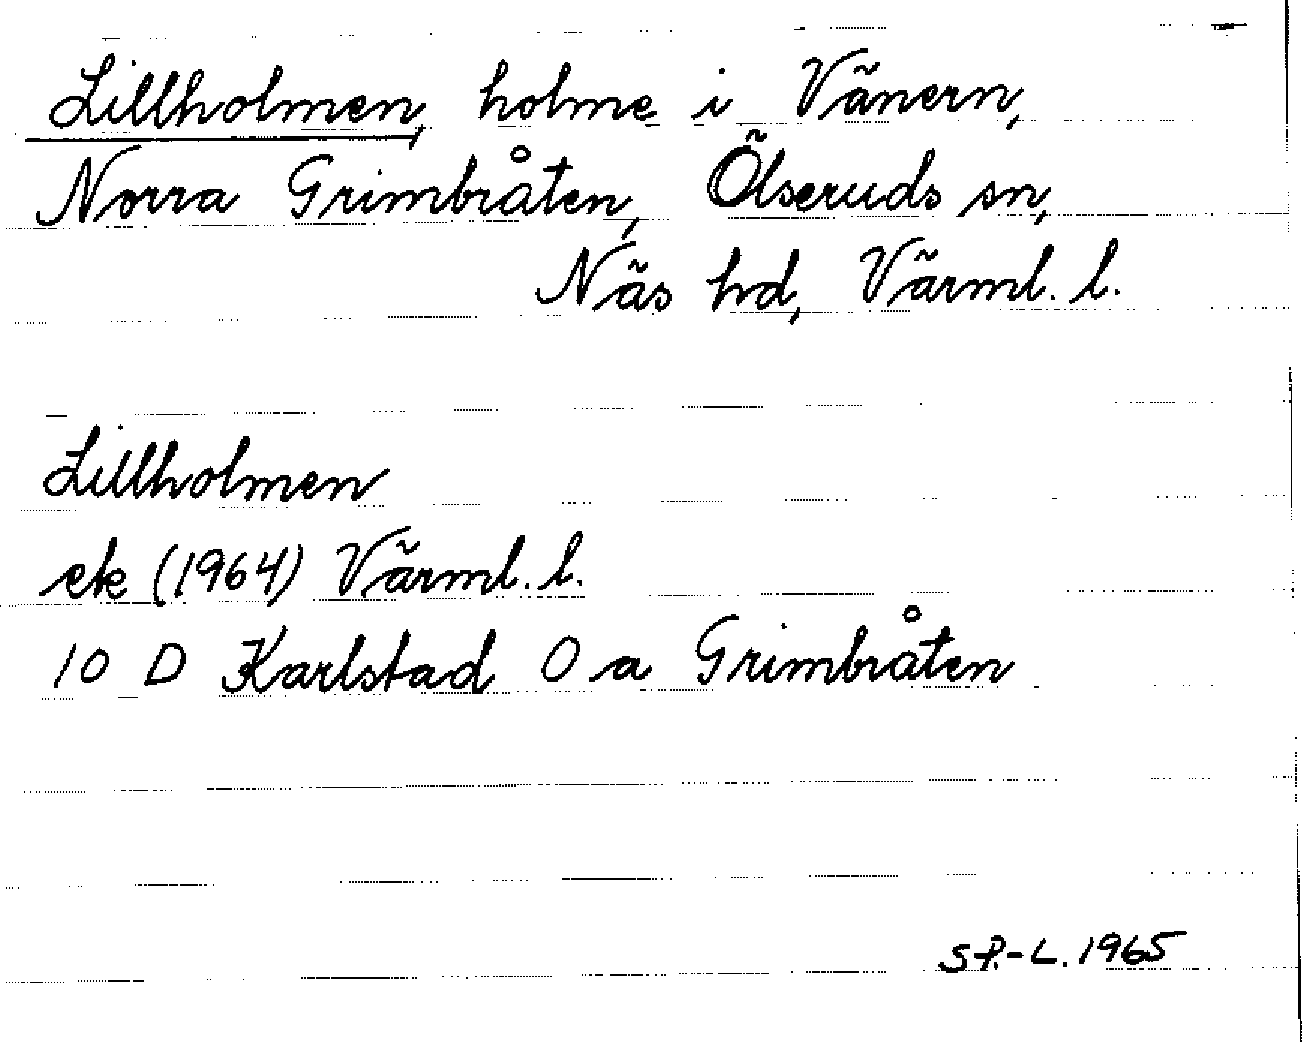 Lillholmen, holme i Vänern,
Norra Grimbråten, Ölseruds sn,
Näs hd, Värml. l.
Lillholmen
ek (1964) Värml. l.
10 D Karlstad O a Grimbråten
SP.-L. 1965